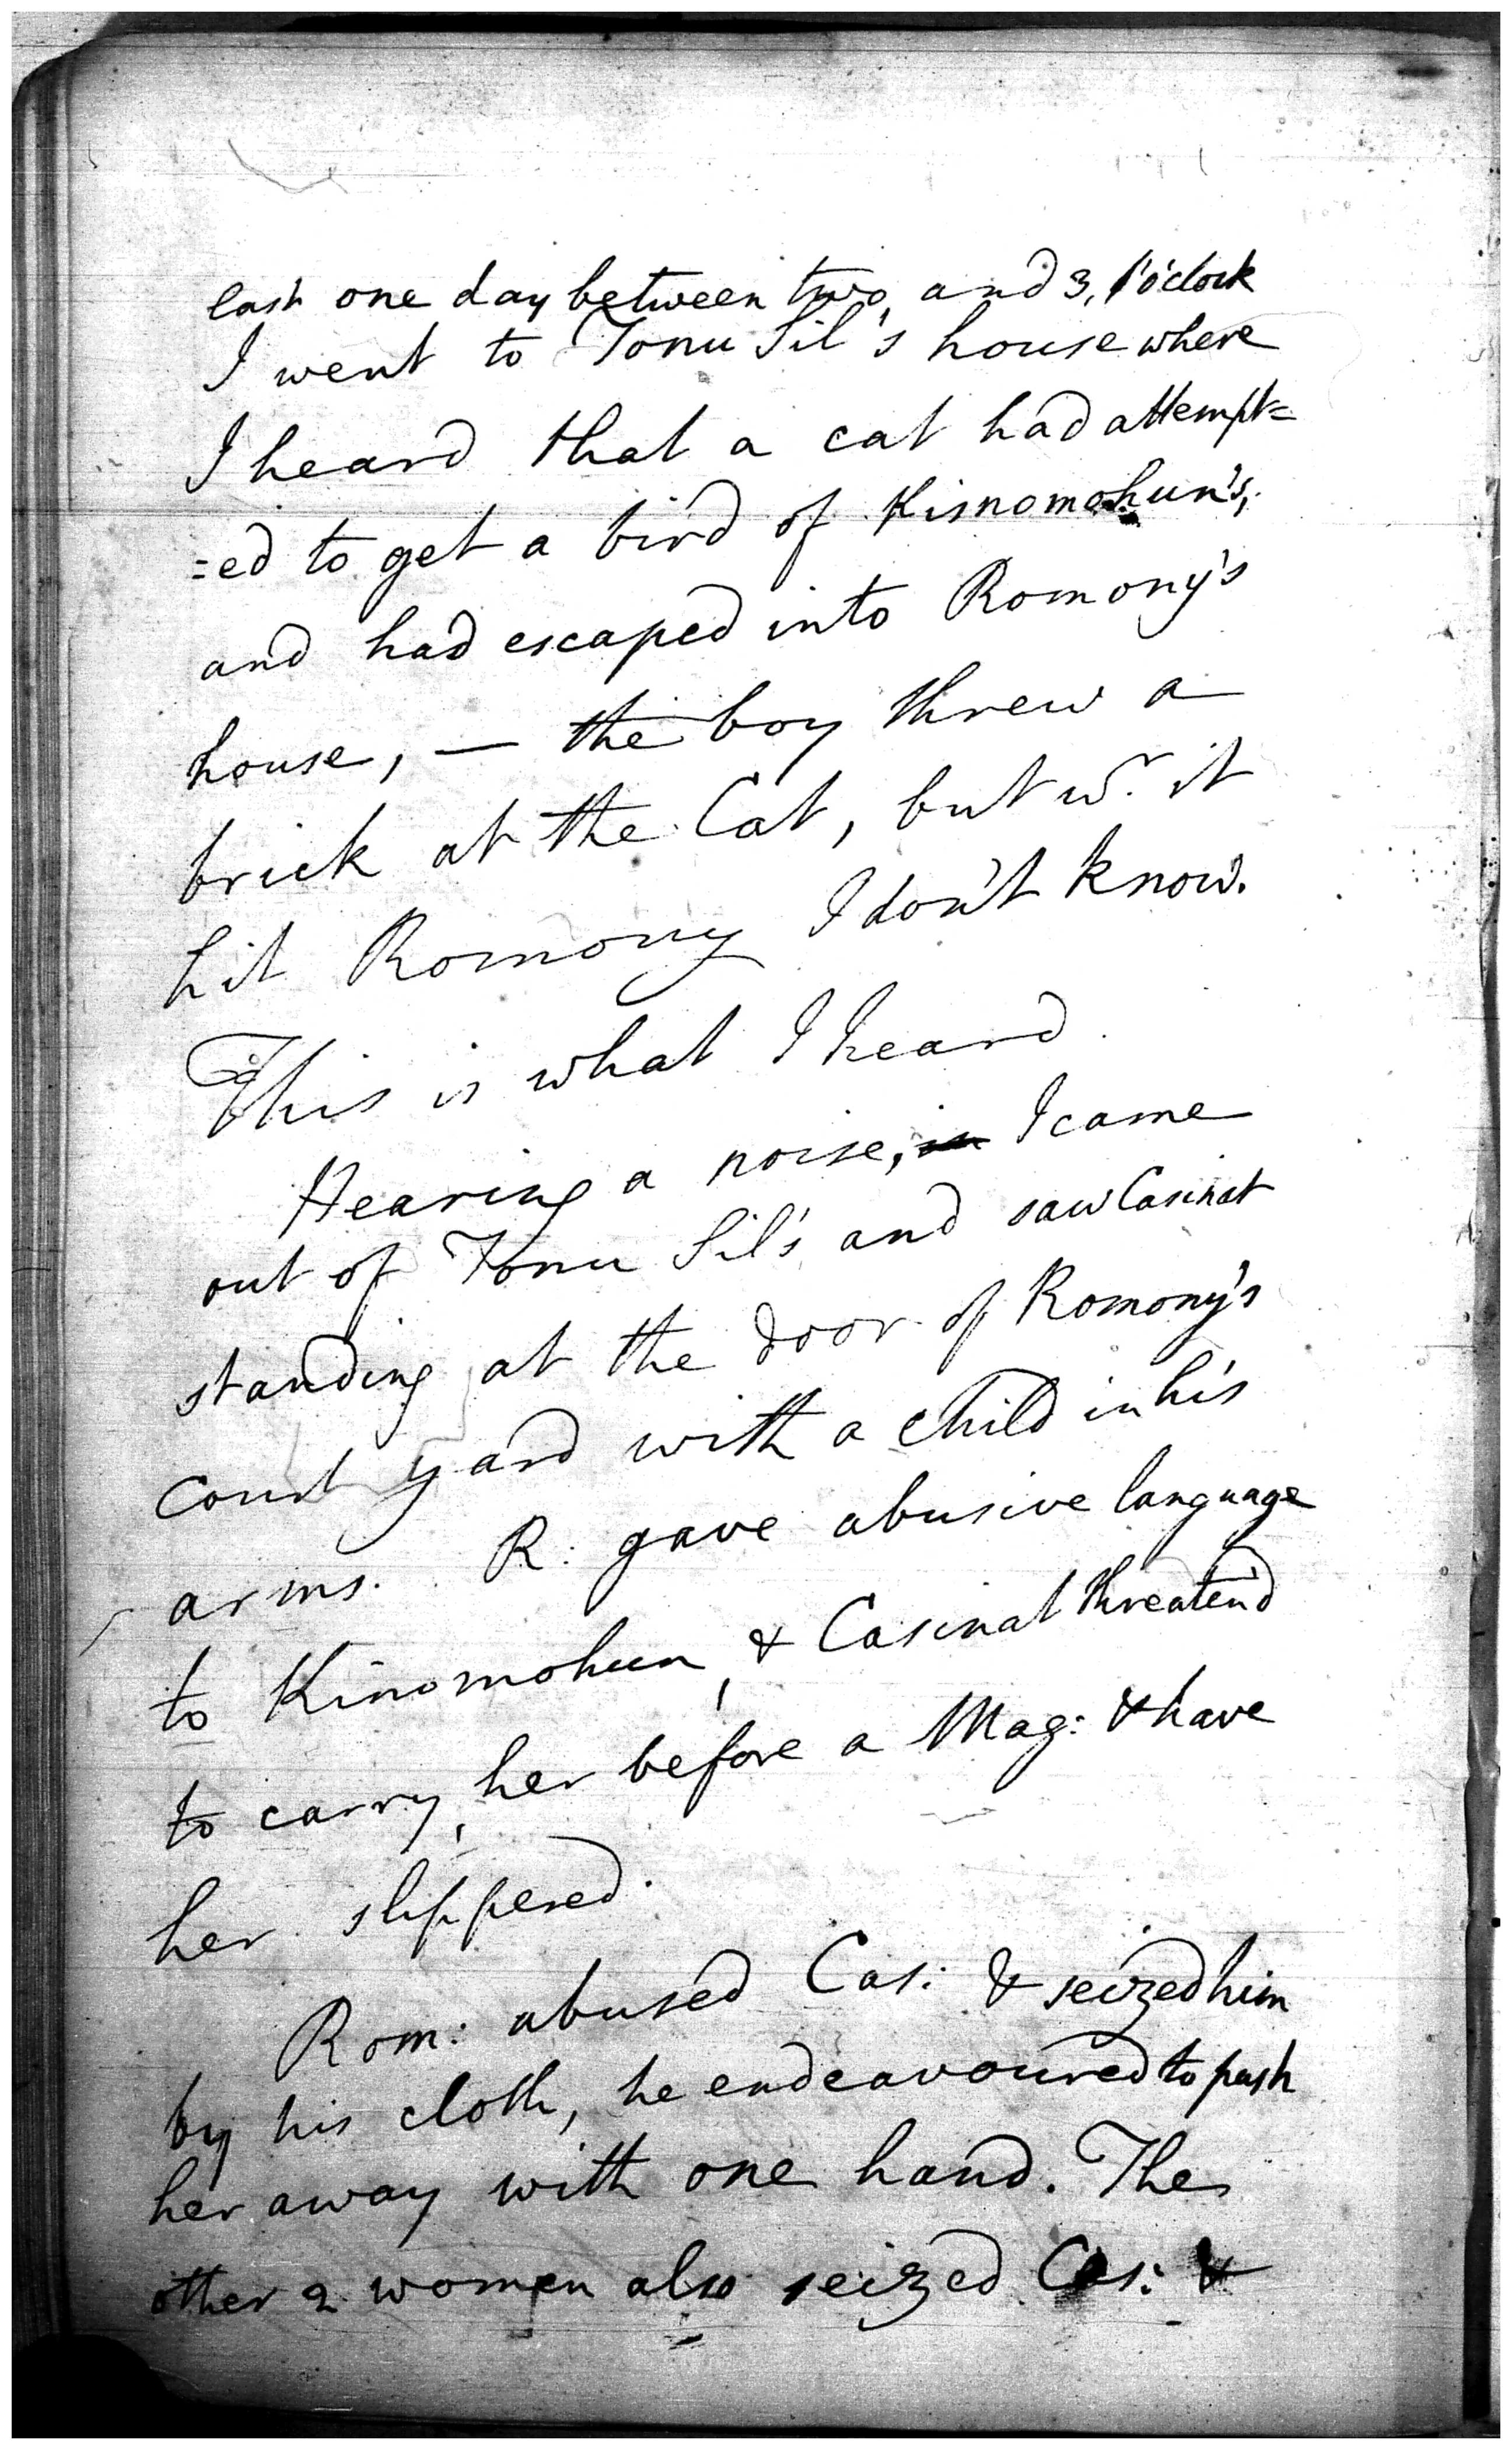 last one day between two, and 3, o'clock
I went to Tonu Sil's house where
I heard that a cat had attempt=
=ed to get a bird of Kisnomohun's,
and had escaped into Romony's
house, — the boy threw a
brick at the Cat, but wr. it
hit Romony I don't know.
This is what I heard.
Hearing a noise, I came
out of Tonu Sil's and saw Casinat
standing at the door of Romony's
Court yard with a child in his
arms. R: gave abusive language
to Kinomohun, & Casinat threaten'd
to carry her before a Mag: & have
her slippered.
Rom: abused Cas: & seized him
by his cloth, he endeavoured to push
her away with one hand. The
other 2 women also seized Cas: &